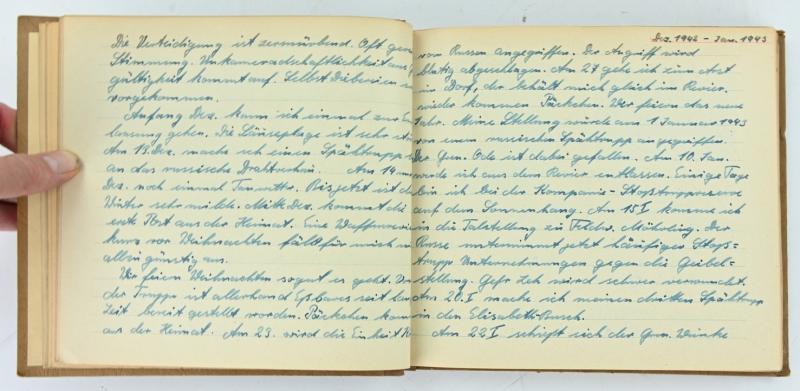 Die Verteidigung ist zermürbend. Oft
Stimmung. Unkameradschaftlichkeit
gültigkeit kommt auf. Selbst Diebereien
vorgekommen.
Anfang Dez. kann ich einmal zur
lassung gehen. Die Läuseplage ist sehr
Am 13. Dez. mache ich einen Spähtrupp
an das russische Drahtverhau. Am 14
Dez. noch einmal Tauwetter. Bis jetzt ist
Winter sehr milde. Mitte Dez. kommt die
erste Post aus der Heimat. Eine
kurz vor Weihnachten fällt für mich
allem günstig aus.
Wir feiern Weihnachten so gut es geht.
der Truppe ist allerhand Eßbares seit
Zeit bereit gestellt worden. Päckchen
aus der Heimat. Am 23. wird die Einheit
Dez. 1942 - Jan. 1943
von Russen angegriffen. Der Angriff wird
blutig abgeschlagen. Am 27 gehe ich zum Arzt
im Dorf, der behält mich gleich im Revier.
wieder kommen Päckchen. Wir feiern das neue
Jahr. Meine Stellung würde am 1 Januar 1943
von einem russischen Spähtrupp angegriffen.
Der Gren. Ode ist dabei gefallen. Am 10. Jan.
werde ich aus dem Revier entlassen. Einige Tage
bin ich bei der Kompanie- Stoßtruppreserve
auf dem Sonnenhang. Am 15 I komme ich
in die Talstellung zu Feldw. Möhring. Der
Russe unternimmt jetzt häufiger Stoß=
trupp Unternehmungen gegen die
stellung. Gefr. wird schwer verwundet.
Am 20. I mache ich meinen dritten Spähtrupp
in den Elisabeth-Busch.
Am 22 I schießt sich der Gren.